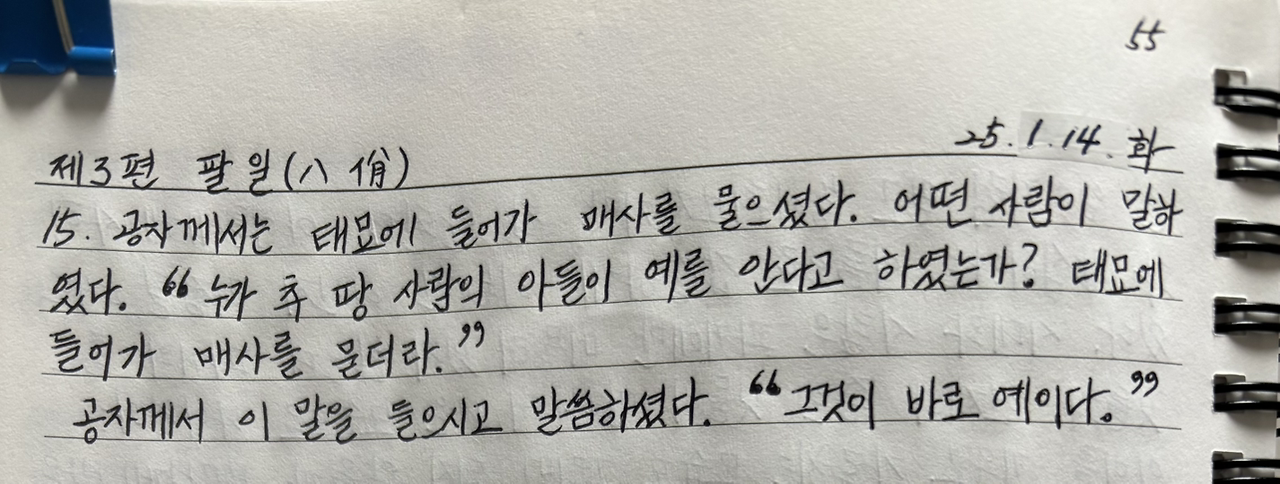 55
25.1.14. 화
제3편 팔일(八佾)
15. 공자께서는 태묘에 들어가 매사를 물으셨다. 어떤 사람이 말하
였다. “누가 추 땅 사람의 아들이 예를 안다고 하였는가? 태묘에
들어가 매사를 묻더라.”
공자께서 이 말을 들으시고 말씀하셨다. “그것이 바로 예이다.”